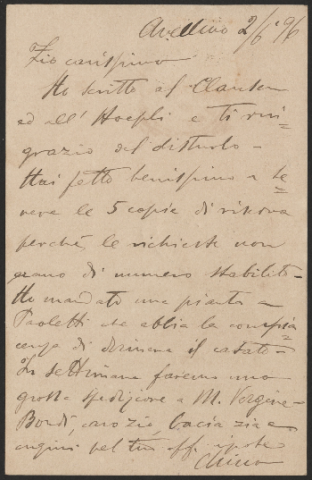 Avellino 2/6º 96
Zio carissimo
Ho scritto al Clausen
ed all' Hoepli e ti rin=
grazio del disturbo -
Hai fatto benissimo a te
nere le 5 copie di riserva
perchè le richieste non
erano di numero stabilito -
Ho mandato una pianta a
Paoletti che abbia la compia
cenza di dirmene il casato -
In settimana faremo una
grossa spedizione a M. Vergine -
Bondì, caro zio, bacia zia e
cugini pel tuo aff. nipote